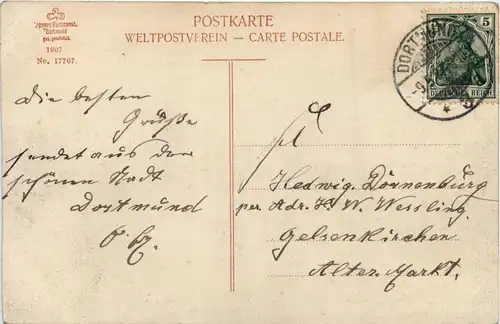 POSTKARTE
WELTPOSTVEREIN – CARTE POSTALE.
1907
No. 17767.
5
DEUTSCHES REICH
DORTMUND
Die besten
Grüße
sendet aus der
schönen Stadt
Dortmund
Hedwig Dörnenburg
per. Adr. H. W. Wessling
Gelsenkirchen
Alter Markt.